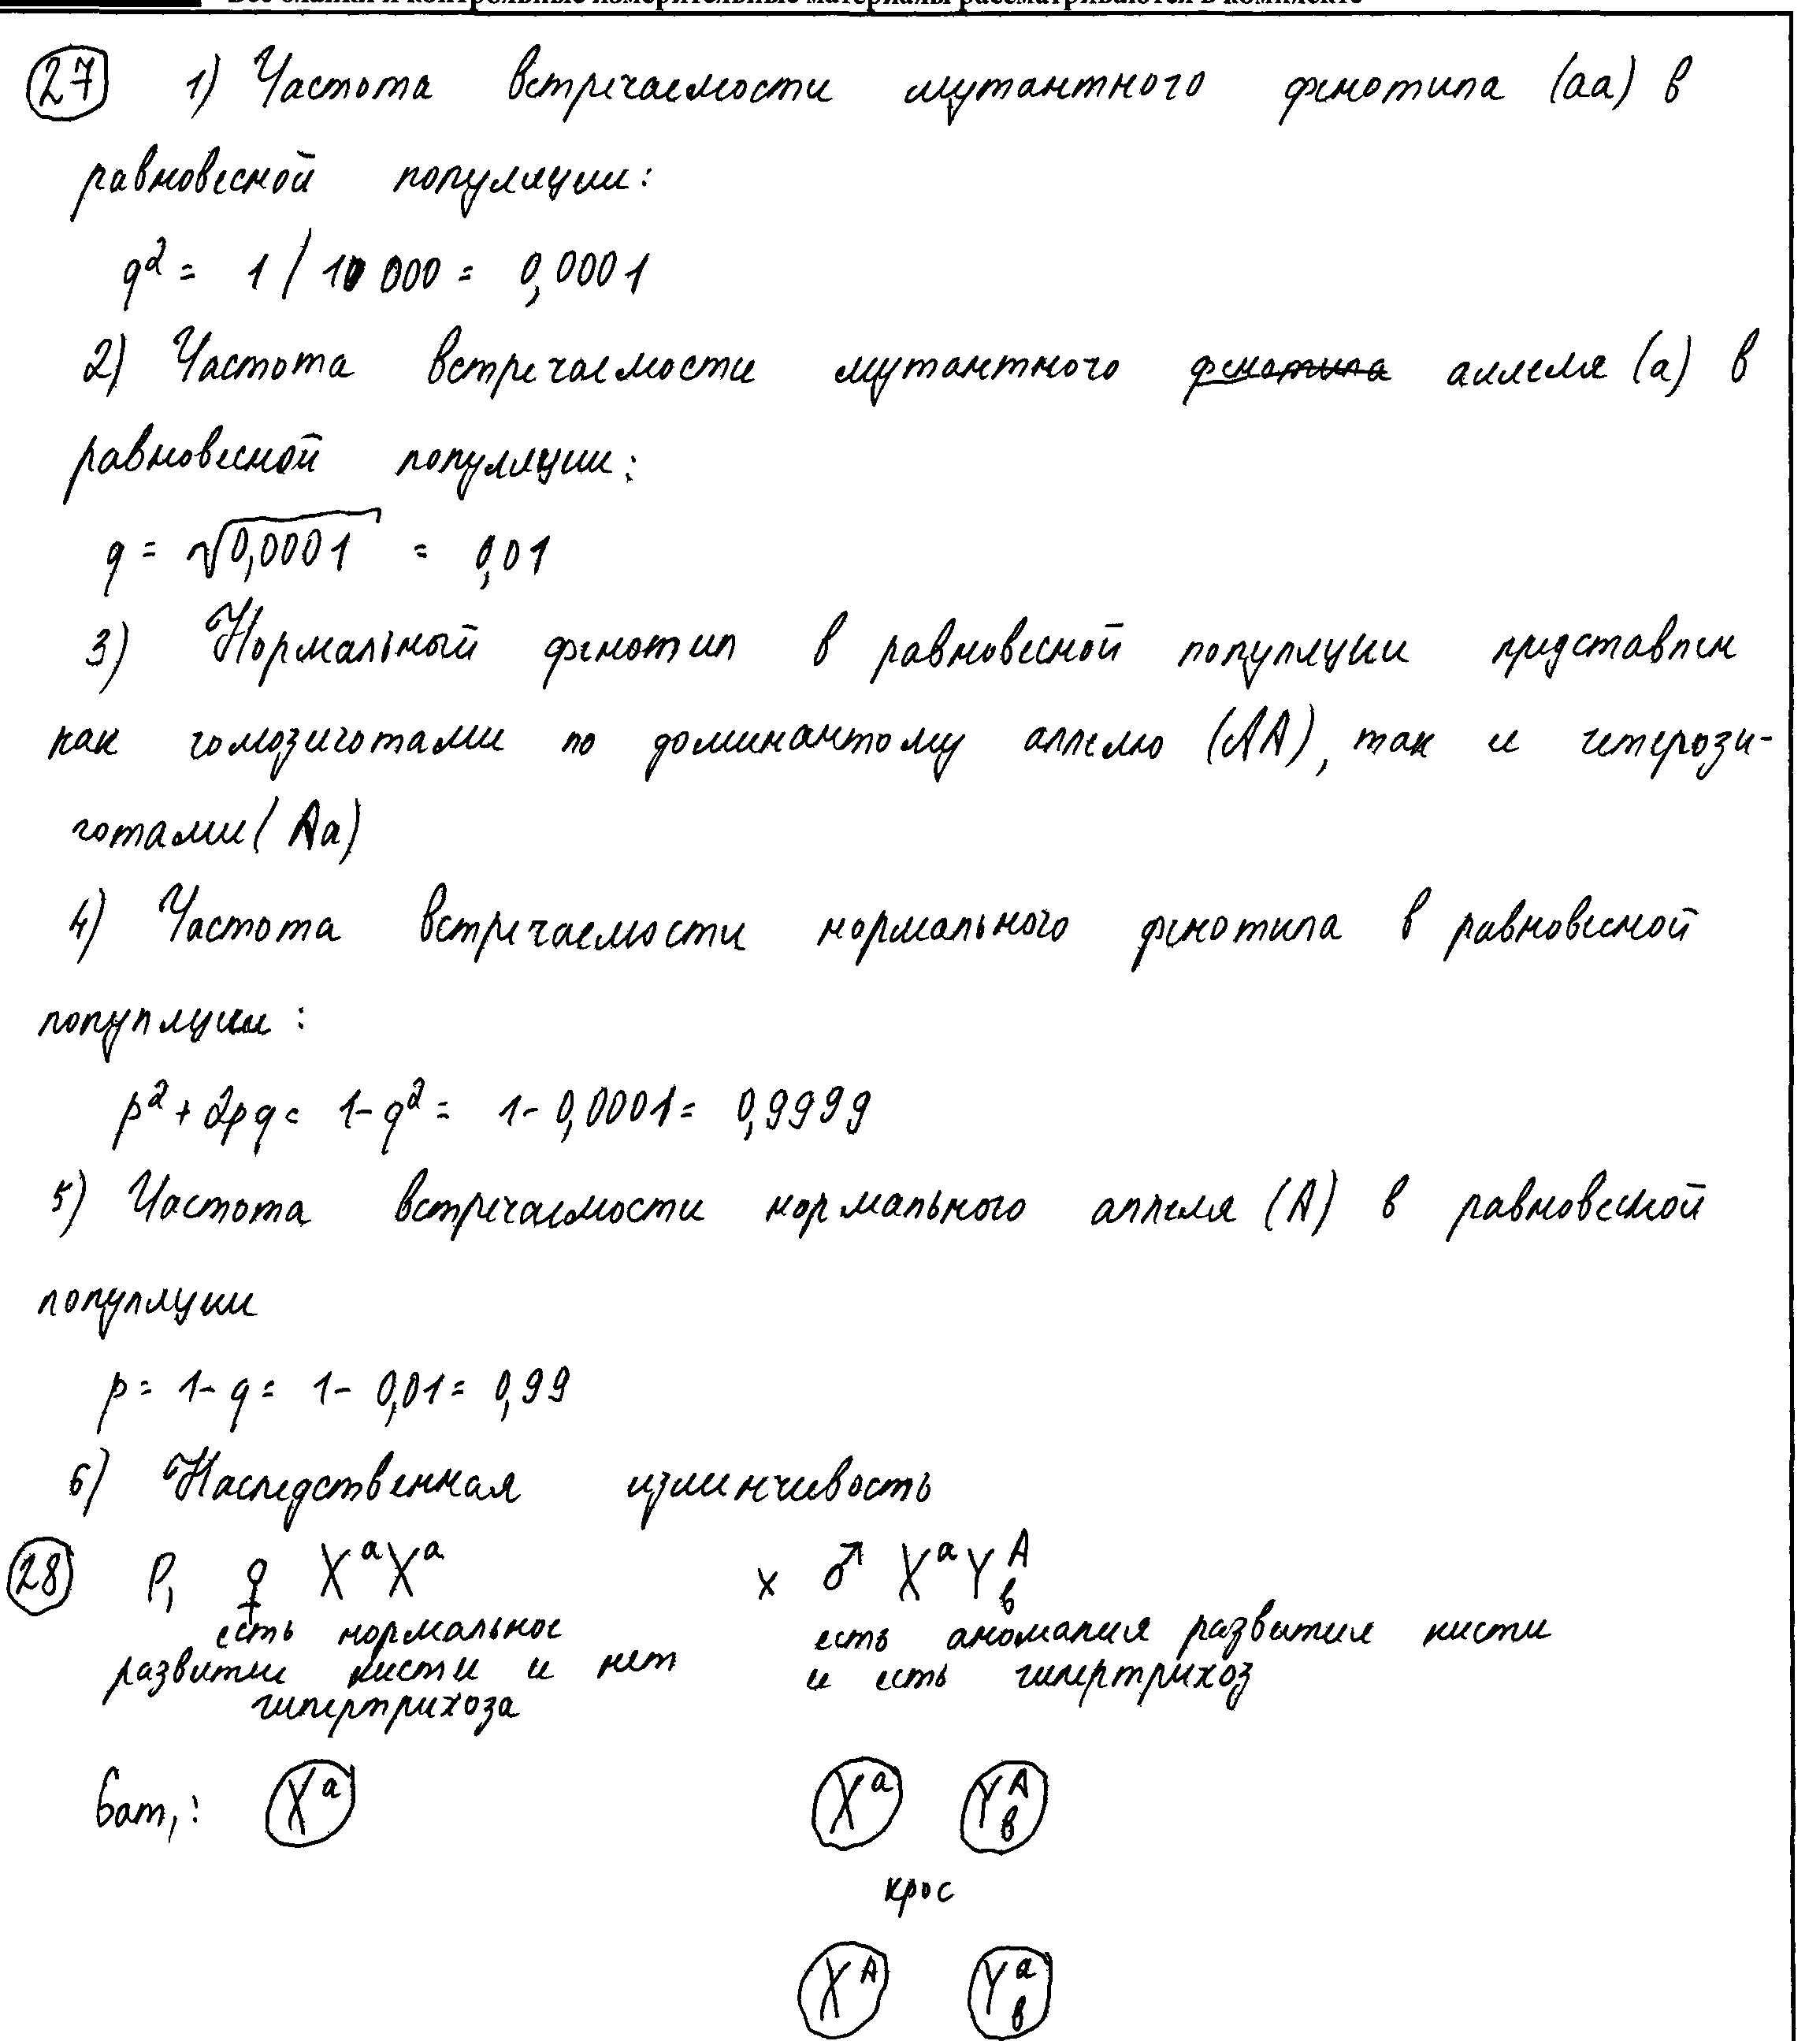 Все бланки и контрольные измерительные материалы рассматриваются в комплекте
27 1) Частота встречаемости мутантного фенотипа (аа) в
равновесной популяции:
q² = 1 / 10 000 = 0,0001
2) Частота встречаемости мутантного ф̶е̶н̶о̶т̶и̶п̶а̶ аллеля (а) в
равновесной популяции:
q = √0,0001 = 0,01
3) Нормальный фенотип в равновесной популяции представлен
как гомозиготами по доминантому аллелю (АА), так и гетерози-
готами (Аа)
4) Частота встречаемости нормального фенотипа в равновесной
популяции :
p² + 2pq = 1 - q² = 1 - 0,0001 = 0,9999
5) Частота встречаемости нормального аллеля (А) в равновесной
популяции
p = 1 - q = 1 - 0,01 = 0,99
6) Наследственная изменчивость
28 P₁ ♀ XᵃXᵃ x ♂ XᵃYᴬв
есть нормальное
развитие кисти и нет
гипертрихоза
есть аномалия развития кисти
и есть гипертрихоз
Gam₁: Xᵃ Xᵃ Yᴬв
крос
Xᴬ Yᵃв